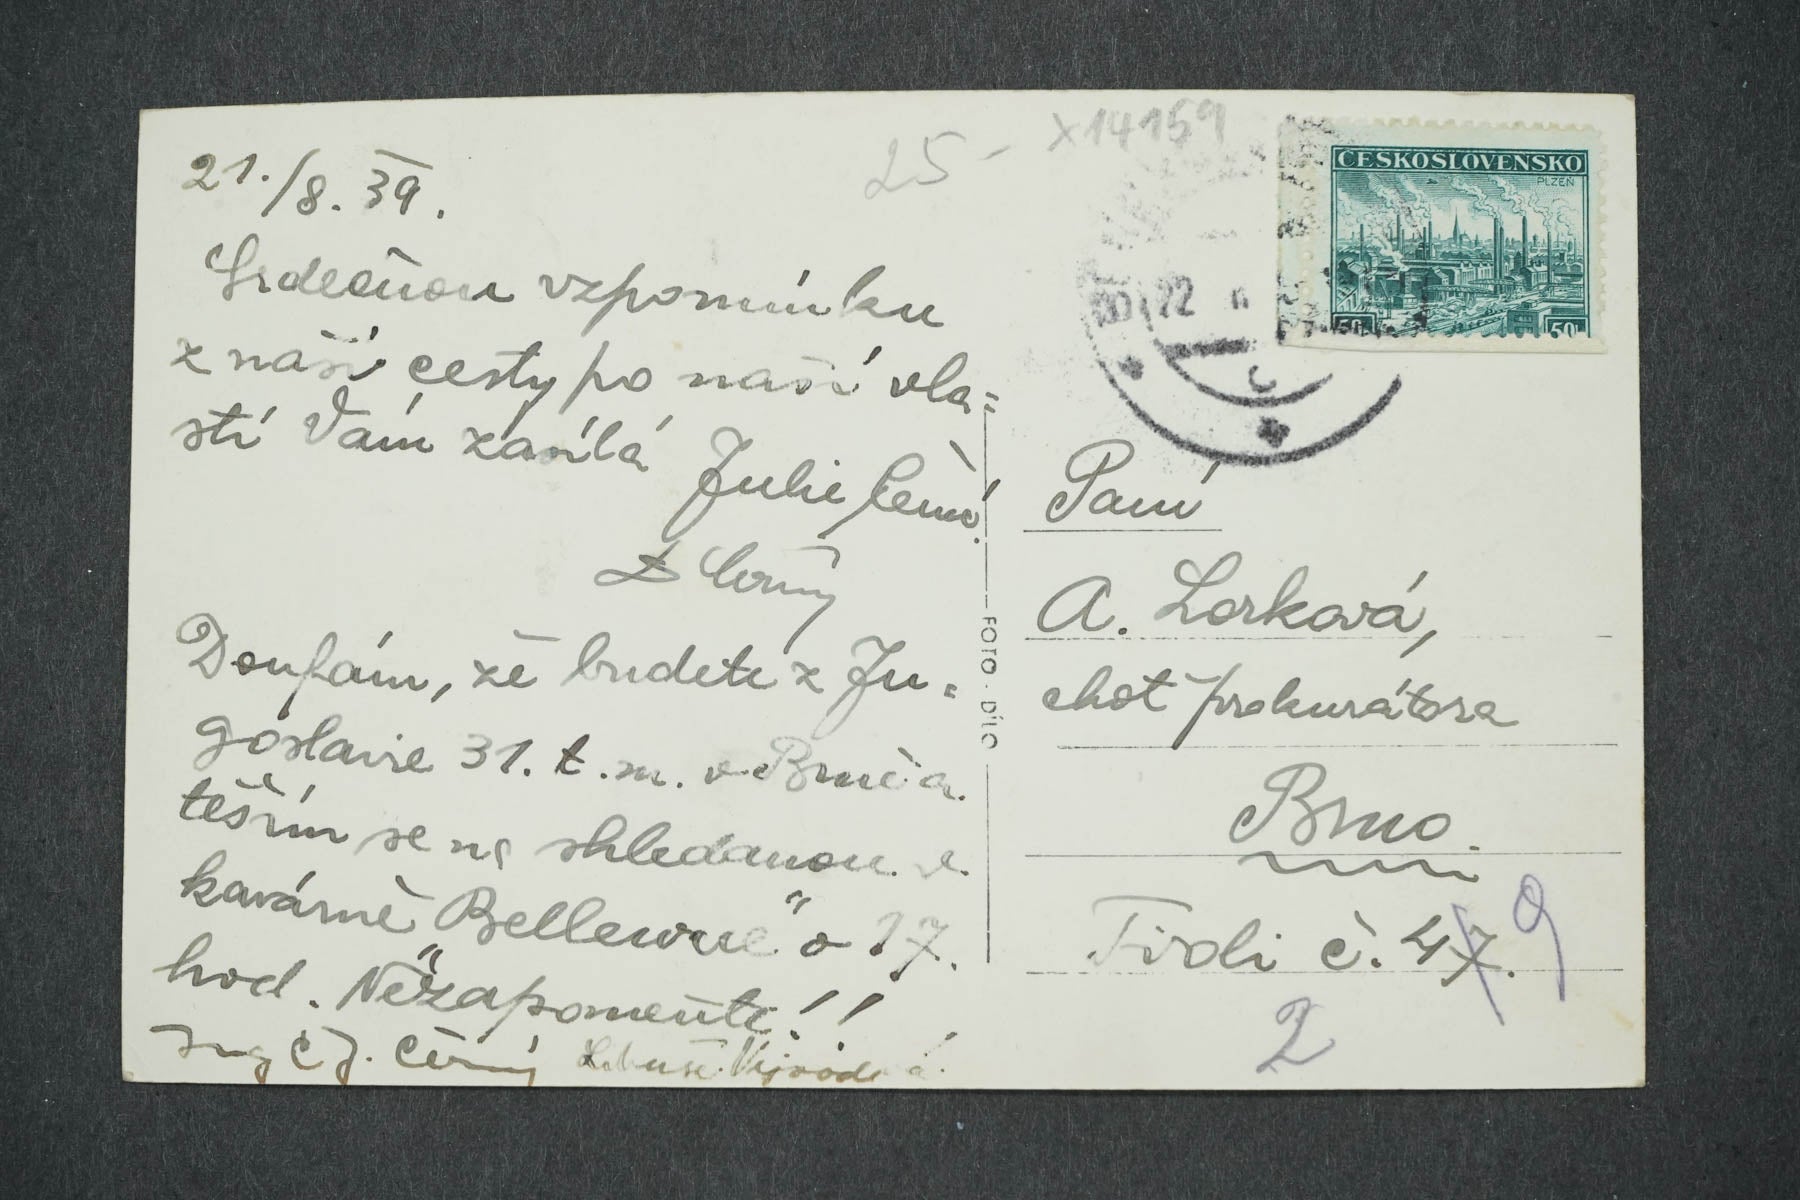 25- x14159
21./8. 39.
Srdečnou vzpomínku
z naší cesty po naší vla=
sti Vám zasílá Julie Černá.
Černý
Doufám, že budete z Ju=
goslavie 31. t. m. v Brně a
těším se na shledanou v
kavárně Bellevue" o 17.
hod. Nezapomeňte!!
Ing Č J. Černý Libuše Vývodová.
FOTO · DÍLO
ČESKOSLOVENSKO
PLZEŇ
50 50
22
Paní
A. Lorková,
choť prokurátora
Brno.
Tivoli č. 47. 9
2